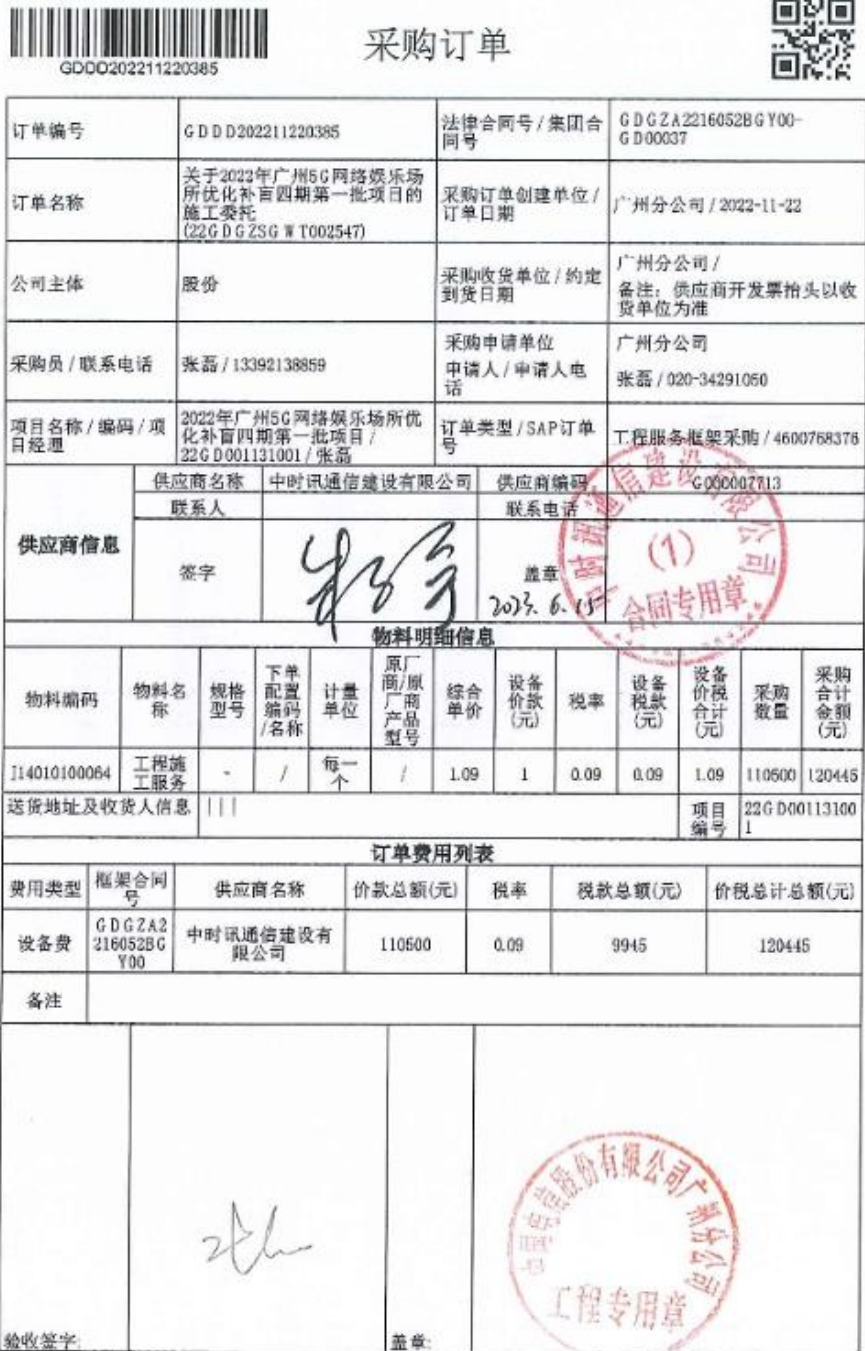 采购订单
GDDD202211220385
订单编号
GDDD202211220385
法律合同号/集团合
同号
GDGZA2216052BGY00-
GD00037
订单名称
关于2022年广州5G网络娱乐场
所优化补盲四期第一批项目的
施工委托
(22GDGZSGWT002547)
采购订单创建单位/
订单日期
广州分公司/2022-11-22
公司主体
股份
采购收货单位/约定
到货日期
广州分公司/
备注：供应商开发票抬头以收
货单位为准
采购员/联系电话
张磊/13392138859
采购申请单位
申请人/申请人电
话
广州分公司
张磊/020-34291050
项目名称/编码/项
目经理
2022年广州5G网络娱乐场所优
化补盲四期第一批项目/
22GD001131001/张磊
订单类型/SAP订单
号
工程服务框架采购/4600768376
供应商信息
供应商名称
中时讯通信建设有限公司
供应商编码
G000007713
联系人
联系电话
签字
盖章
2023.6.15
中时讯通信建设有限公司
(1)
合同专用章
物料明细信息
物料编码
物料名
称
规格
型号
下单
配置
编码
/名称
计量
单位
原厂
商/原
厂商
产品
型号
综合
单价
设备
价款
(元)
税率
设备
税款
(元)
设备
价税
合计
(元)
采购
数量
采购
合计
金额
(元)
J14010100064
工程施
工服务
-
/
每一
个
/
1.09
1
0.09
0.09
1.09
110500
120445
送货地址及收货人信息
|||
项目
编号
22GD00113100
1
订单费用列表
费用类型
框架合同
号
供应商名称
价款总额(元)
税率
税款总额(元)
价税总计总额(元)
设备费
GDGZA2
216052BG
Y00
中时讯通信建设有
限公司
110500
0.09
9945
120445
备注
验收签字:
盖章:
中国电信股份有限公司广州分公司
工程专用章